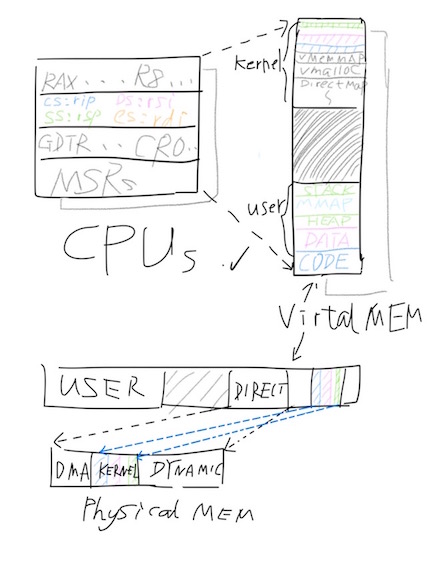 RAX... R8...
CS:rip DS:rsi
SS:rsp ES:rdi
GDTR... CR0..
MSRs
CPUs
kernel
vMemMAP
vmalloc
DirectMap
user
STACK
MMAP
HEAP
DATA
CODE
Virtal MEM
USER DIRECT
DMA KERNEL DYNAMIC
Physical MEM